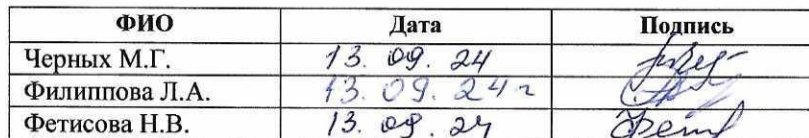 ФИО Дата Подпись
Черных М.Г. 13. 09. 24
Филиппова Л.А. 13. 09. 24 г
Фетисова Н.В. 13. 09. 24